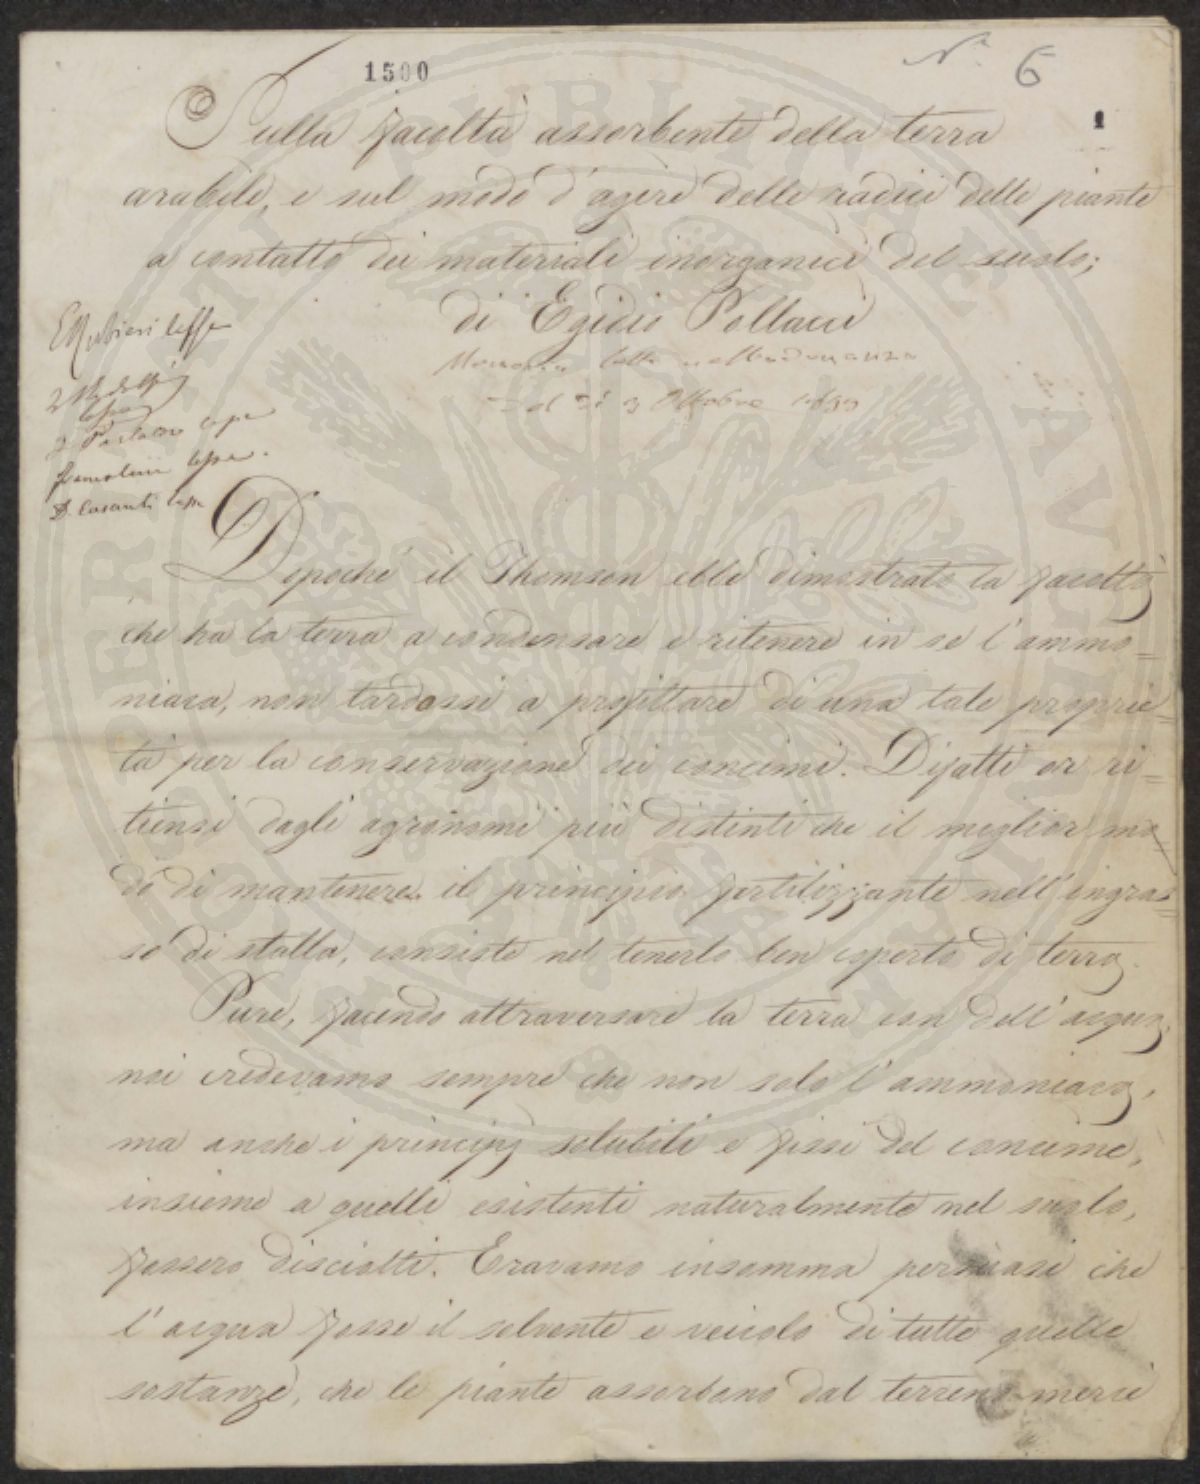 1500
N. 6
1
Sulla facoltà assorbente della terra
arabile, e sul modo d'agire delle radici delle piante
a contatto dei materiali inorganici del suolo;
di Egidio Pollacci
Memoria letta nell'adunanza
del dì 3 Ottobre
Rubieri lesse
lesse
lesse
D. Casanti lesse
Dopochè il Thomson ebbe dimostrato la facoltà
che ha la terra a condensare e ritenere in se l'ammo=
niaca, non tardossi a profittare di una tale proprie=
tà per la conservazione dei concimi. Difatti or ri=
tiensi dagli agronomi più distinti che il miglior mo
do di mantenere il principio fertilizzante nell'ingras=
so di stalla, consiste nel tenerlo ben coperto di terra.
Pure, facendo attraversare la terra con dell'acqua,
noi credevamo sempre che non solo l'ammoniaca,
ma anche i principj solubili e fissi del concime,
insieme a quelli esistenti naturalmente nel suolo,
fossero disciolti. Eravamo insomma persuasi che
l'acqua fosse il solvente e veicolo di tutte quelle
sostanze, che le piante assorbono dal terreno mercè